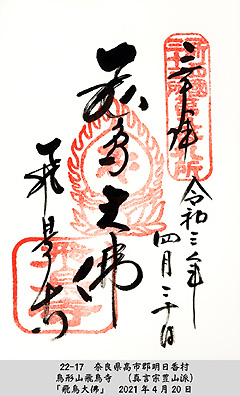 奉拝
令和三年
四月二十日
飛鳥大佛
飛鳥寺
22-17　奈良県高市郡明日香村
鳥形山飛鳥寺　（真言宗豊山派）
「飛鳥大佛」　2021年4月20日